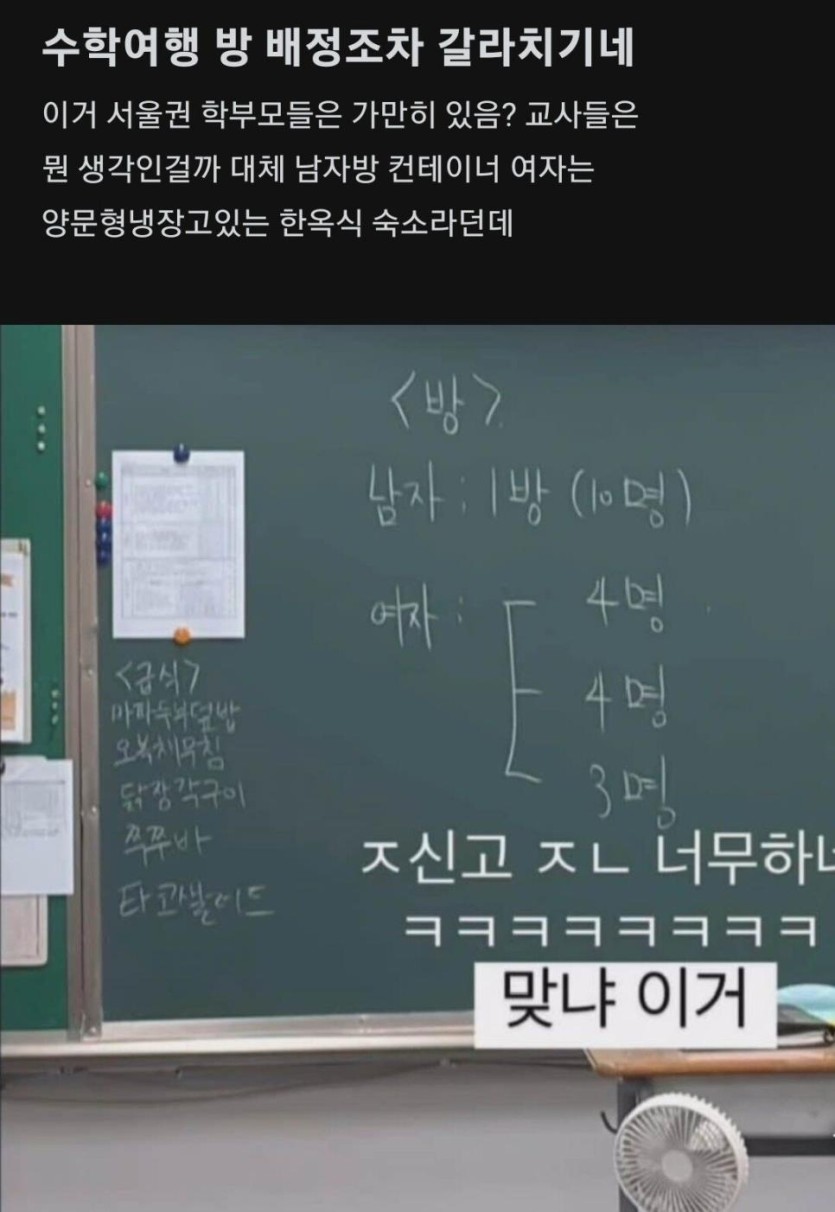 수학여행 방 배정조차 갈라치기네
이거 서울권 학부모들은 가만히 있음? 교사들은
뭔 생각인걸까 대체 남자방 컨테이너 여자는
양문형냉장고있는 한옥식 숙소라던데
<방>
남자 : 1방 (10명)
여자 :
4명
4명
3명
<급식>
마파두부덮밥
오복채무침
닭장각구이
쭉쭈바
ㅈ신고 ㅈㄴ 너무하네
ㅋㅋㅋㅋㅋㅋㅋㅋ
맞냐 이거